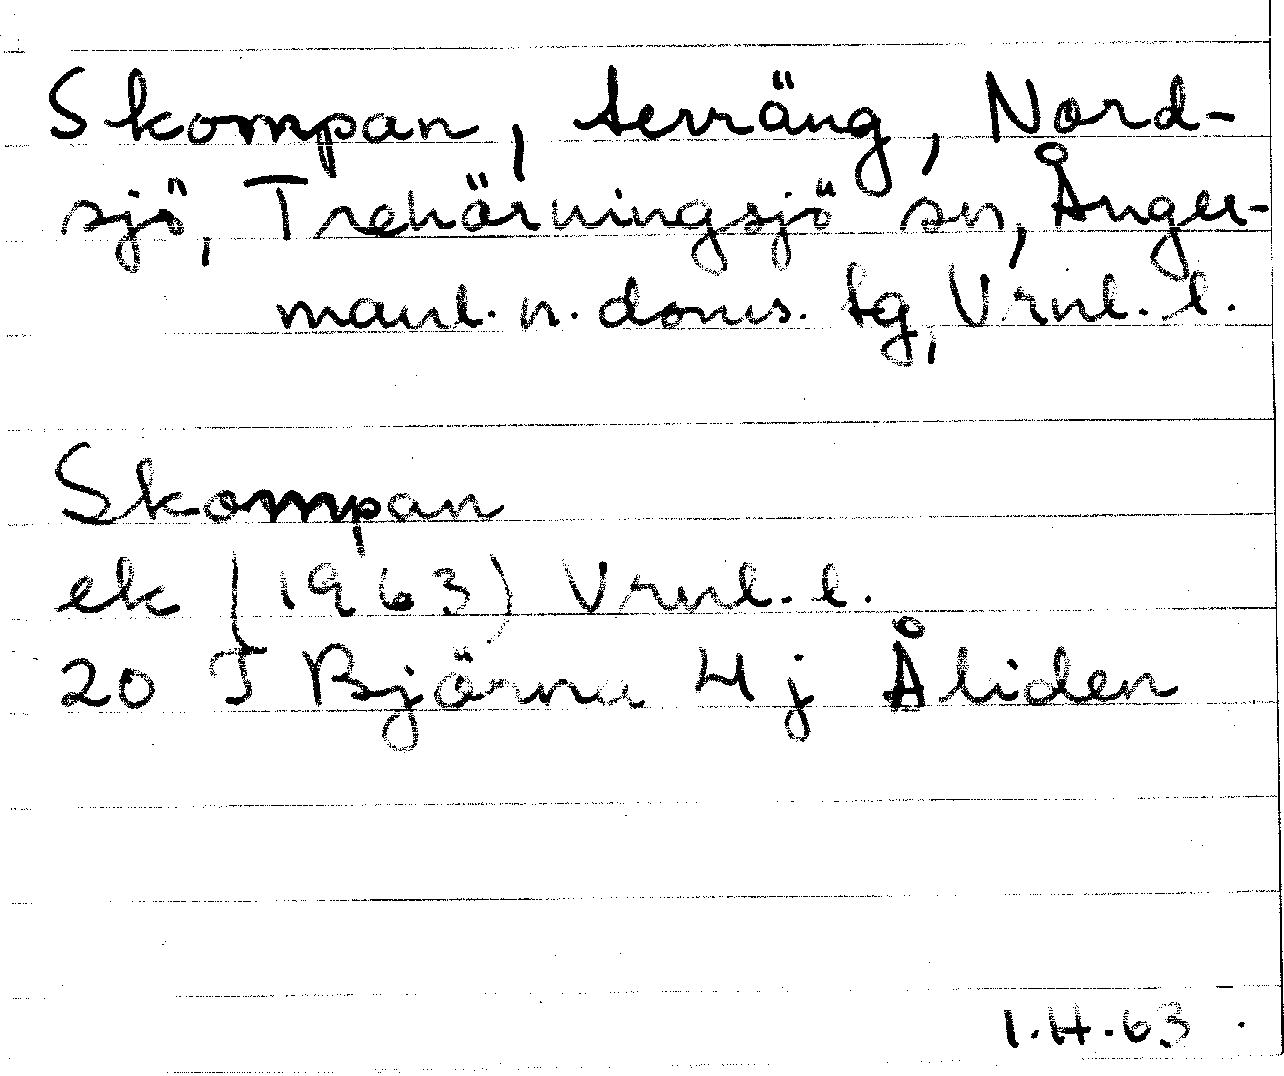 Skompan, terräng, Nord-
sjö, Trehörningsjö sn, Ånger-
manl. n. doms. tg, Vrnl. l.
Skompan
ek (1963) Vrnl. l.
20 J Björna 4 j Åliden
1.4.63